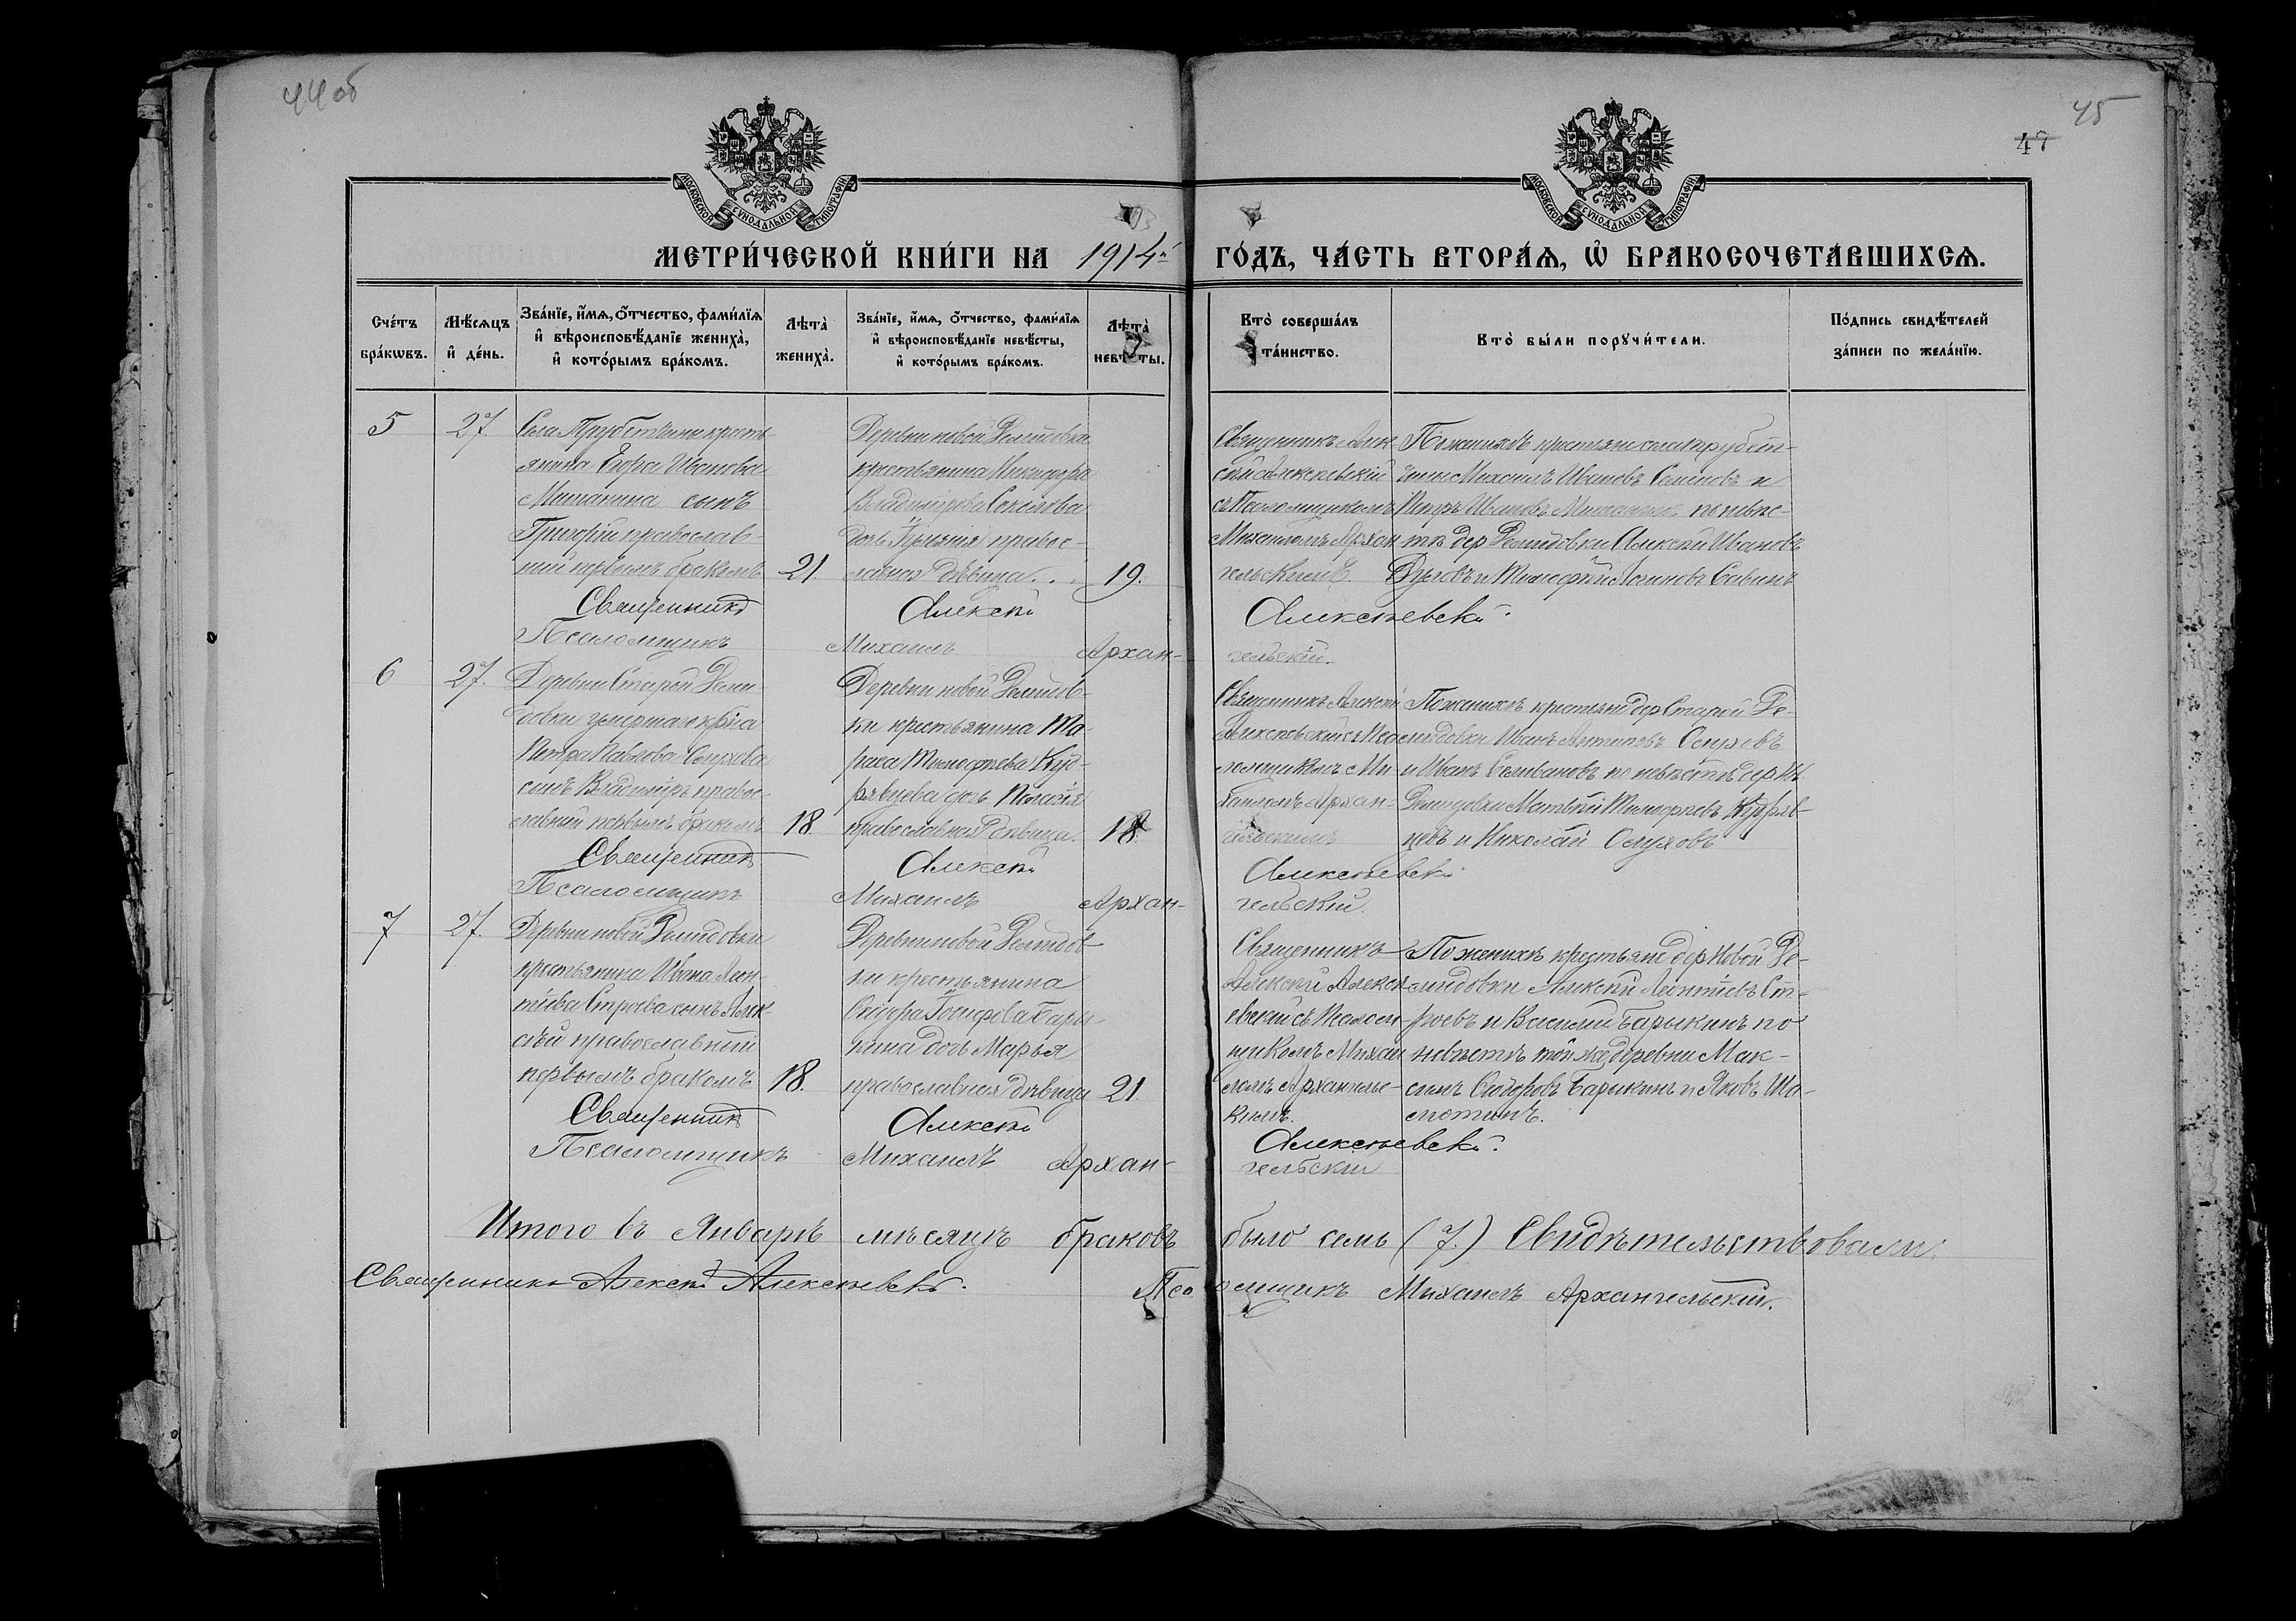 44об
45
47
МОСКОВСКОЙ СѴНОДАЛЬНОЙ ТИПОГРАФІИ
МОСКОВСКОЙ СѴНОДАЛЬНОЙ ТИПОГРАФІИ
МЕТРИ́ЧЕСКОЙ КНИ́ГИ НА 1914й ГО́ДЪ, ЧА́СТЬ ВТОРА́Ѧ, Ѡ҆ БРАКОСОЧЕТА́ВШИХСѦ.
Сче́тъ бра́кѡвъ.
Мѣ́сѧцъ и҆ де́нь.
Зва́нїе, и҆́мѧ, ѻ҆́тчество, фами́лїѧ и҆ вѣроисповѣ́данїе жениха̀, и҆ кото́рымъ бра́комъ.
Лѣ̀та жениха̀.
Зва́нїе, и҆́мѧ, ѻ҆́тчество, фами́лїѧ и҆ вѣроисповѣ́данїе невѣ́сты, и҆ кото́рымъ бра́комъ.
Лѣ̀та невѣ́сты.
Кто̀ соверша́лъ та́инство.
Кто̀ бы́ли порꙋчи́тели.
По́дпись свидѣ́телей за́писи по жела́нїю.
5
27.
Села Трубетчины кресть-
янина Егора Иванова
Мишанина сынъ
Григорій православ-
ный первымъ бракомъ
21.
Деревни новой Демидовки
крестьянина Никифора
Владимірова Соколова
дочь правос-
лавная дѣвица
19.
Священникъ Алек-
сѣй Алексѣевскій
съ Псаломщикомъ
Михаиломъ Архан-
гельскимъ.
По женихѣ крестьяне села Трубет-
чины Михаилъ Ивановъ Семеновъ и
Петръ Ивановъ Мишанинъ по невѣс-
тѣ дер Демидовки Алексѣй Ивановъ
и Тимофей Савинъ
Священникъ Алексѣй Алексѣевскій.
Псаломщикъ Михаилъ Архан-
гельскій.
6
27.
Деревни Старой Деми-
довки умершаго кр-на
Петра Павлова Опухова
сынъ Владиміръ правос-
лавный первымъ бракомъ
18.
Деревни новой Демидов-
ки крестьянина Ма-
Тимофѣева Куд-
рявцева дочь Пелагія
православная дѣвица.
18.
Священникъ Алексѣй
Алексѣевскій съ Пса-
ломщикомъ Ми-
хаиломъ Архан-
гельскимъ
По женихѣ крестьяне дер Старой Де-
мидовки Иванъ Антиповъ Опуховъ
и Иванъ Селивановъ по невѣстѣ дер Н.
Демидовки Матвѣй Тимофѣевъ Кудряв-
цевъ и Николай Опуховъ
Священникъ Алексѣй Алексѣевскій.
Псаломщикъ Михаилъ Архан-
гельскій.
7
27.
Деревни новой Демидовки
крестьянина Ивана Леон-
тіева Строева сынъ Алек-
сѣй православный
первымъ бракомъ
18.
Деревни новой Демидов-
ки крестьянина
Сидора Іосифова Бары-
кина дочь Марья
православная дѣвица
21.
Священникъ
Алексѣй Алексѣ-
евскій съ Псалом-
щикомъ Михаи-
ломъ Архангельс-
кимъ.
По женихѣ крестьяне дер Новой Де-
мидовки Алексѣй Леонтіевъ Ст-
роевъ и Василій Барыкинъ по
невѣстѣ той же деревни Мак-
симъ Сидоровъ Барыкинъ и Яковъ Ша-
мотинъ.
Священникъ Алексѣй Алексѣевскій.
Псаломщикъ Михаилъ Архан-
гельскій
Итого въ Январѣ мѣсяцѣ браковъ было семь (7.) Свидѣтельствовали:
Священникъ Алексѣй Алексѣевскій. Псаломщикъ Михаилъ Архангельскій.